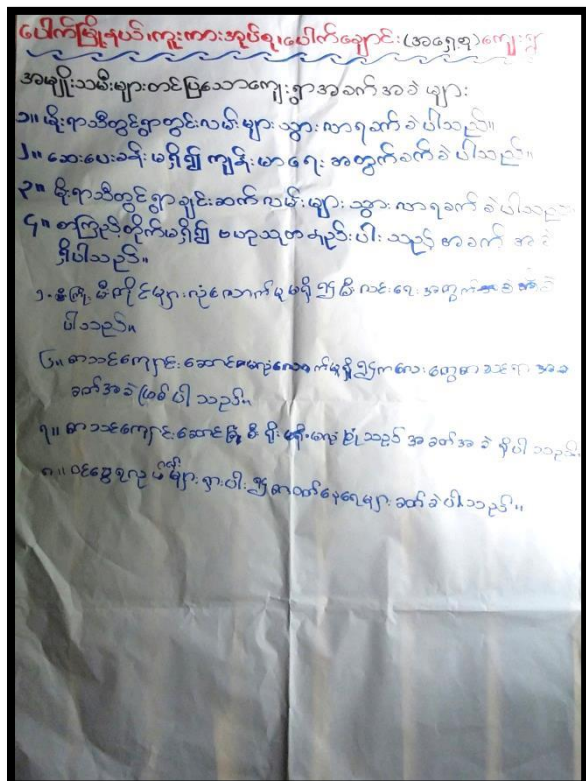 ပေါက်မြို့နယ်၊ကူးကားအုပ်စု၊ပေါက်ချောင်း(အရှေ့စု)ကျေးရွာ
အမျိုးသမီးများတင်ပြသောကျေးရွာအခက်အခဲများ
၁။ မိုးရာသီတွင်ရွာတွင်းလမ်းများသွားလာရခက်ခဲပါသည်။
၂။ ဆေးပေးခန်းမရှိ၍ကျန်းမာရေးအတွက်ခက်ခဲပါသည်။
၃။ မိုးရာသီတွင်ရွာချင်းဆက်လမ်းများသွားလာရခက်ခဲပါသည်။
၄။ စာကြည့်တိုက်မရှိ၍ဗဟုသုတနည်းပါးသည့်အခက်အခဲ
ရှိပါသည်။
၅။ မီးတိုင်များလုံလောက်မှုမရှိ၍မီးလင်းရေးအတွက်ခက်ခဲ
ပါသည်။
၆။ စာသင်ကျောင်းဆောင်မလုံလောက်မှုရှိ၍ကလေးတွေစာသင်ရာအခ
ခက်အခဲဖြစ်ပါသည်။
၇။ စာသင်ကျောင်းဆောင်ခြံစည်းရိုးမလုံခြုံသည့်အခက်အခဲရှိပါသည်။
၈။ ဝင်ငွေရလုပ်ငန်းများရှားပါး၍စားဝတ်နေရေးများခက်ခဲပါသည်။